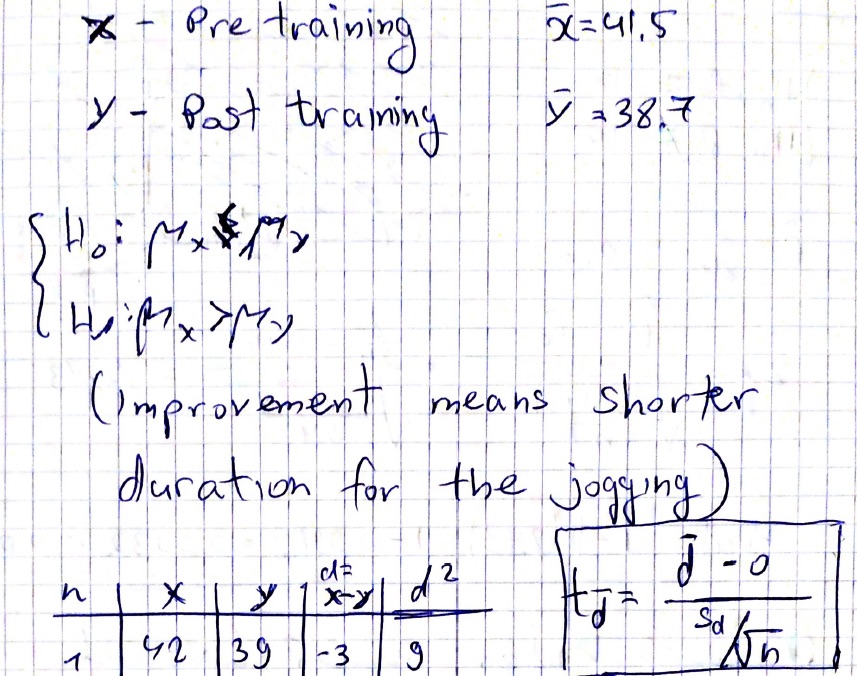 x - Pre training x̄=41.5
y - Post training ȳ=38.7
H₀: μₓ ≤ μᵧ
H₁: μₓ > μᵧ
(Improvement means shorter
duration for the jogging)
n | x | y | d= x-y | d²
1 | 42 | 39 | -3 | 9
t_d̄ = (d̄ - 0) / (s_d/√n)